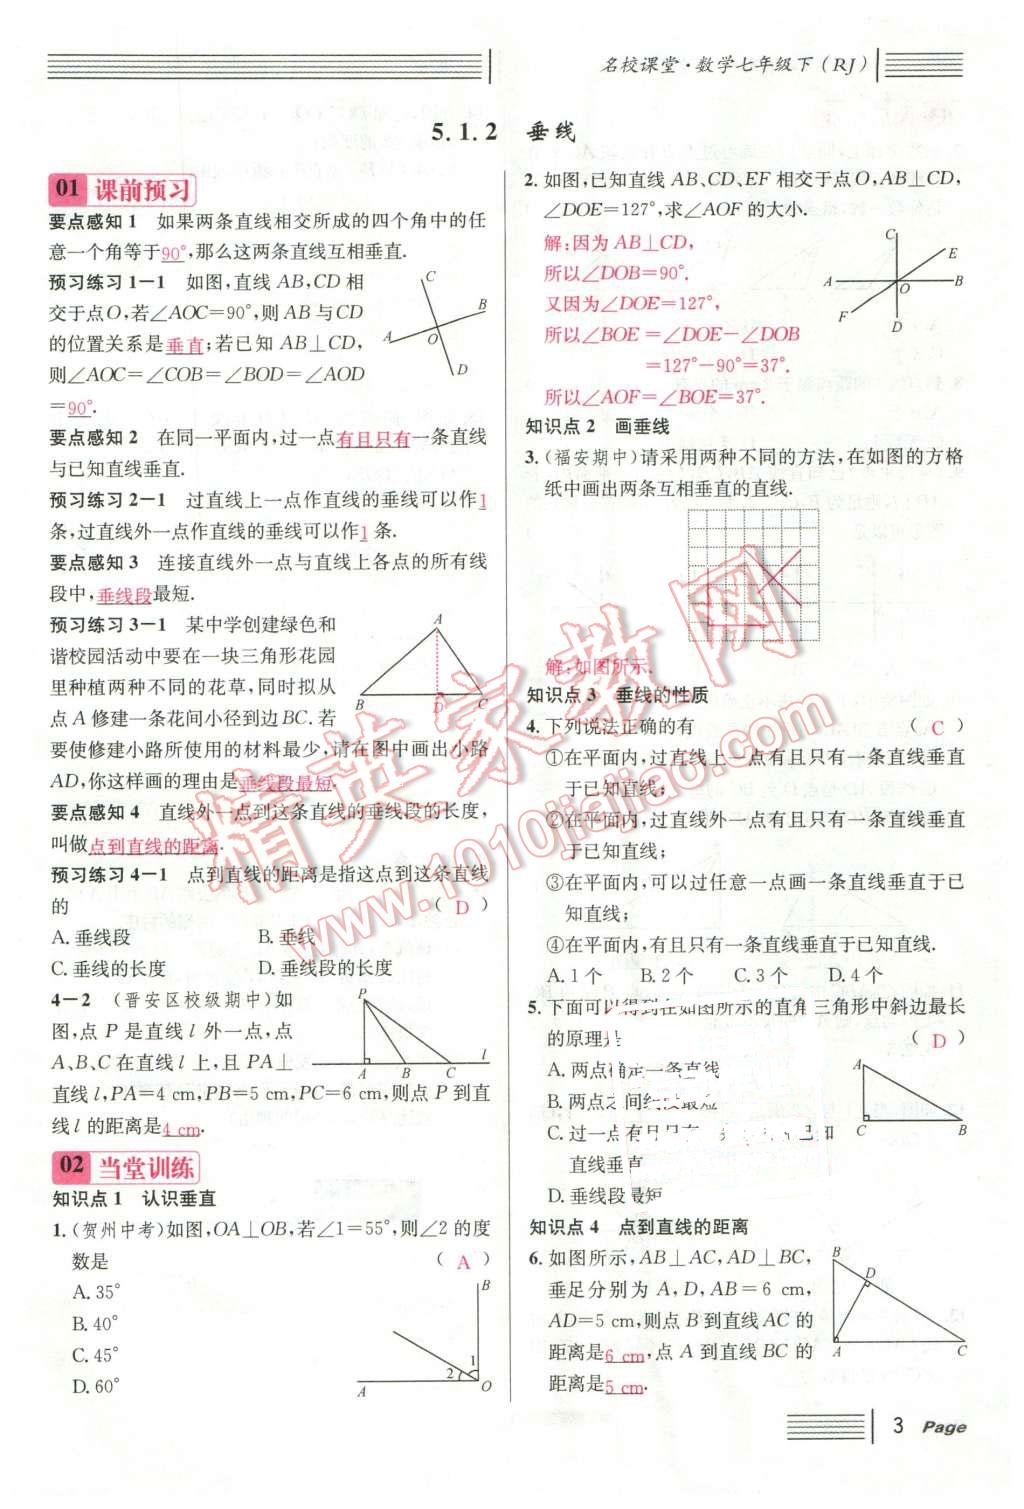 名校课堂·数学七年级下(RJ)
5.1.2 垂线
01 课前预习
要点感知1 如果两条直线相交所成的四个角中的任
意一个角等于90°,那么这两条直线互相垂直.
预习练习1-1 如图,直线AB,CD相
交于点O,若∠AOC=90°,则AB与CD
的位置关系是垂直;若已知AB⊥CD,
则∠AOC=∠COB=∠BOD=∠AOD
=90°.
C
B
A
O
D
要点感知2 在同一平面内,过一点有且只有一条直线
与已知直线垂直.
预习练习2-1 过直线上一点作直线的垂线可以作1
条,过直线外一点作直线的垂线可以作1条.
要点感知3 连接直线外一点与直线上各点的所有线
段中,垂线段最短.
预习练习3-1 某中学创建绿色和
谐校园活动中要在一块三角形花园
里种植两种不同的花草,同时拟从
点A修建一条花间小径到边BC.若
要使修建小路所使用的材料最少,请在图中画出小路
AD,你这样画的理由是垂线段最短.
A
B
D
C
要点感知4 直线外一点到这条直线的垂线段的长度,
叫做点到直线的距离.
预习练习4-1 点到直线的距离是指这点到这条直线
的 ( D )
A.垂线段 B.垂线
C.垂线的长度 D.垂线段的长度
4-2 (晋安区校级期中)如
图,点P是直线l外一点,点
A、B、C在直线l上,且PA⊥
直线l,PA=4 cm,PB=5 cm,PC=6 cm,则点P到直
线l的距离是4 cm.
P
A
B
C
l
02 当堂训练
知识点1 认识垂直
1.(贺州中考)如图,OA⊥OB,若∠1=55°,则∠2的度
数是 ( A )
A.35°
B.40°
C.45°
D.60°
B
1
2
A
O
2.如图,已知直线AB、CD、EF相交于点O,AB⊥CD,
∠DOE=127°,求∠AOF的大小.
解:因为AB⊥CD,
所以∠DOB=90°.
又因为∠DOE=127°,
所以∠BOE=∠DOE-∠DOB
=127°-90°=37°.
所以∠AOF=∠BOE=37°.
C
E
A
O
B
F
D
知识点2 画垂线
3.(福安期中)请采用两种不同的方法,在如图的方格
纸中画出两条互相垂直的直线.
解:如图所示.
知识点3 垂线的性质
4.下列说法正确的有 ( C )
①在平面内,过直线上一点有且只有一条直线垂直
于已知直线;
②在平面内,过直线外一点有且只有一条直线垂直
于已知直线;
③在平面内,可以过任意一点画一条直线垂直于已
知直线;
④在平面内,有且只有一条直线垂直于已知直线.
A.1个 B.2个 C.3个 D.4个
5.下面可以得到在如图所示的直角三角形中斜边最长
的原理是 ( D )
A.两点确定一条直线
B.两点之间线段最短
C.过一点有且只有一条直线和已知
直线垂直
D.垂线段最短
A
C
B
知识点4 点到直线的距离
6.如图所示,AB⊥AC,AD⊥BC,
垂足分别为A,D,AB=6 cm,
AD=5 cm,则点B到直线AC的
距离是6 cm,点A到直线BC的
距离是5 cm.
B
D
A
C
精英家教网
www.1010jiajiao.com
3 Page